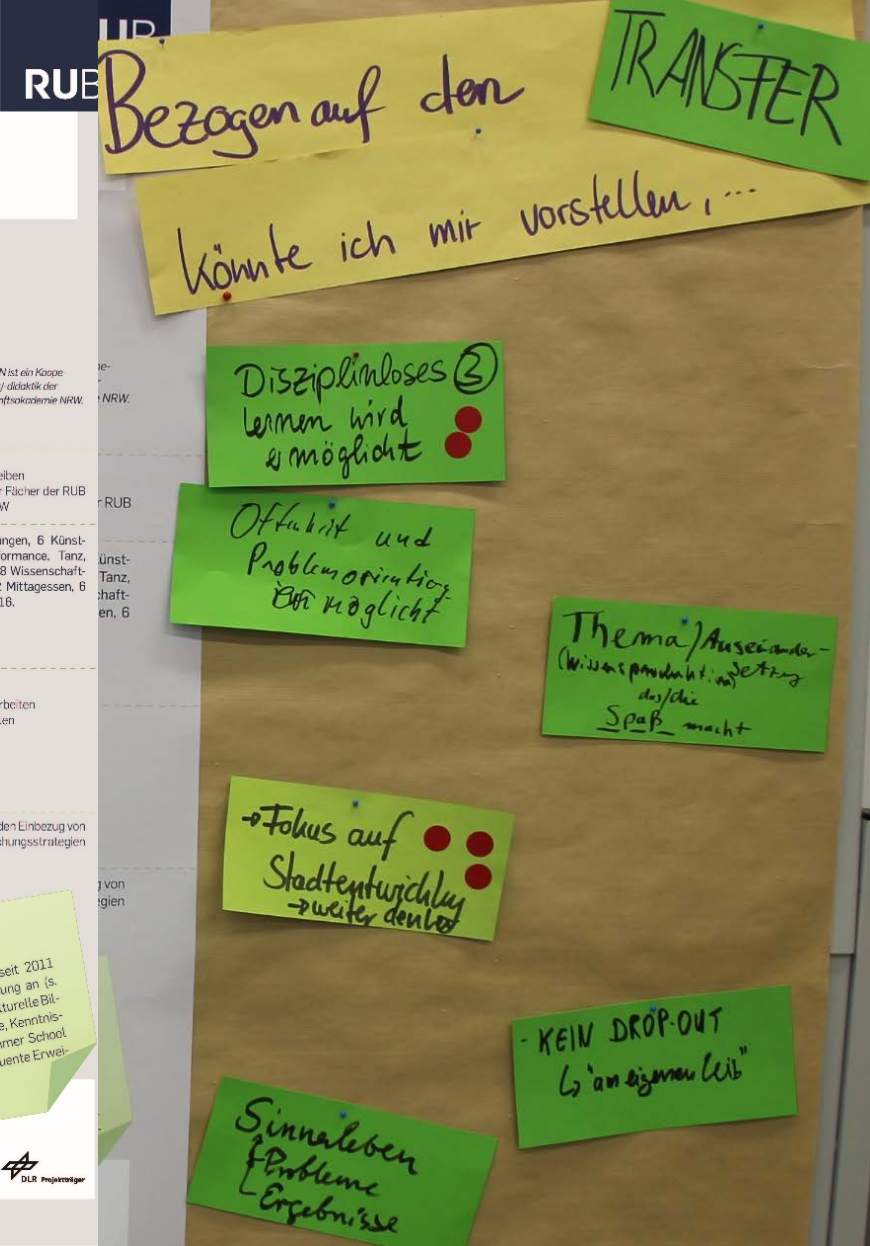 RUB
RUB
N ist ein Koope-
/-didaktik der
nftsakademie NRW.
NRW.
eiben
r Fächer der RUB
r RUB
W
ungen, 6 Künst-
formance, Tanz,
8 Wissenschaft-
2 Mittagessen, 6
16.
ünst-
Tanz,
chaft-
en, 6
rbeiten
len
den Einbezug von
chungsstrategien
g von
egien
seit 2011
ung an (s.
lturelle Bil-
e, Kenntnis-
mmer School
quente Erwei-
DLR Projektträger
Bezogen auf den
TRANSFER
könnte ich mir vorstellen, ...
Disziplinloses 3
lernen wird
ermöglicht
Offenheit und
Problemorientierung
ermöglicht
Thema/Auseinander-
(Wissensproduktion) setzung
das/die
Spaß macht
→ Fokus auf
Stadtentwicklung
→ weiter denken
- KEIN DROP-OUT
↳ "an eigenen Leib"
Sinnerleben
Probleme
Ergebnisse